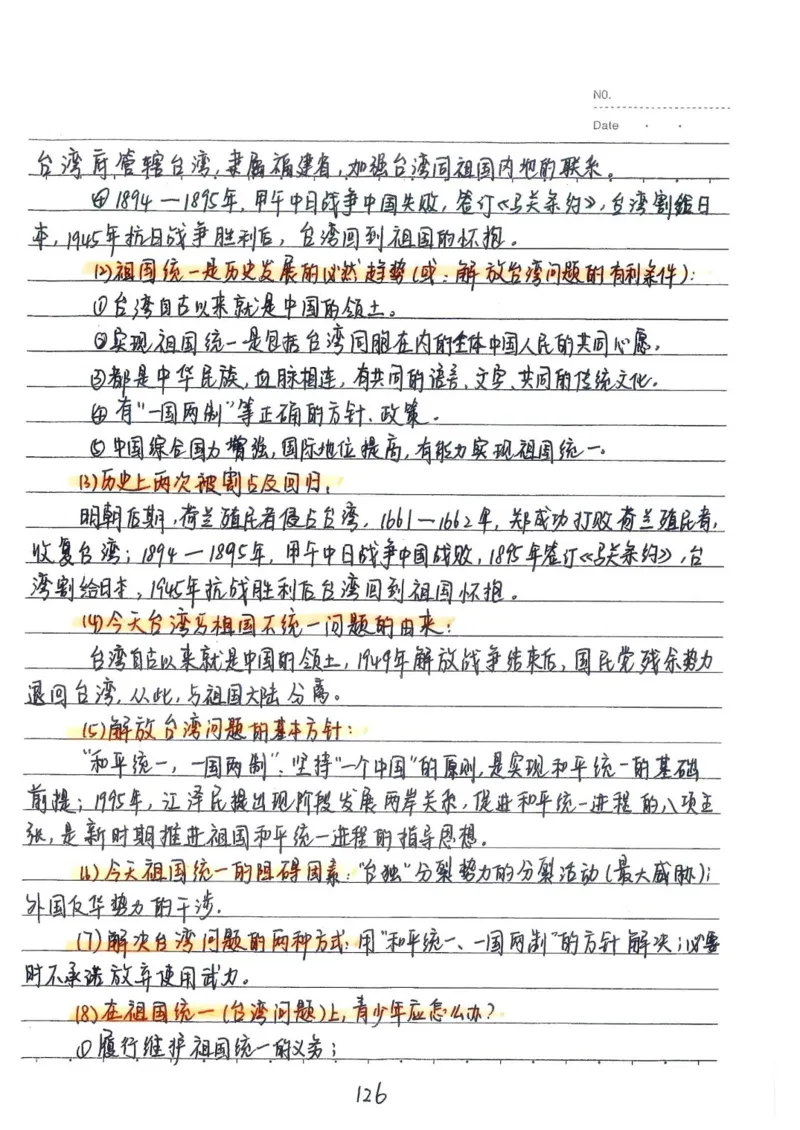 NO.
Date
台湾府管辖台湾,隶属福建省,加强台湾同祖国内地的联系。
④1894—1895年,甲午中日战争中国失败,签订《马关条约》,台湾割给日
本,1945年抗日战争胜利后,台湾回到祖国的怀抱。
(2)祖国统一是历史发展的必然趋势(或:解放台湾问题的有利条件):
①台湾自古以来就是中国的领土。
②实现祖国统一是包括台湾同胞在内的全体中国人民的共同心愿。
③都是中华民族,血脉相连,有共同的语言、文字、共同的传统文化。
④有“一国两制”等正确的方针、政策。
⑤中国综合国力增强,国际地位提高,有能力实现祖国统一。
(3)历史上两次被割占及回归:
明朝后期,荷兰殖民者侵占台湾,1661—1662年,郑成功打败荷兰殖民者,
收复台湾;1894—1895年,甲午中日战争中国战败,1895年签订《马关条约》,台
湾割给日本,1945年抗战胜利后台湾回到祖国怀抱。
(4)今天台湾与祖国不统一问题的由来:
台湾自古以来就是中国的领土,1949年解放战争结束后,国民党残余势力
退回台湾,从此,与祖国大陆分离。
(5)解放台湾问题的基本方针:
“和平统一,一国两制”;坚持“一个中国”的原则,是实现和平统一的基础
前提;1995年,江泽民提出现阶段发展两岸关系,促进和平统一进程的八项主
张,是新时期推进祖国和平统一进程的指导思想。
(6)今天祖国统一的阻碍因素:“台独”分裂势力的分裂活动(最大威胁);
外国反华势力的干涉.
(7)解决台湾问题的两种方式:用“和平统一、一国两制”的方针解决;必要
时不承诺放弃使用武力。
(8)在祖国统一(台湾问题)上,青少年应怎么办?
①履行维护祖国统一的义务;
126